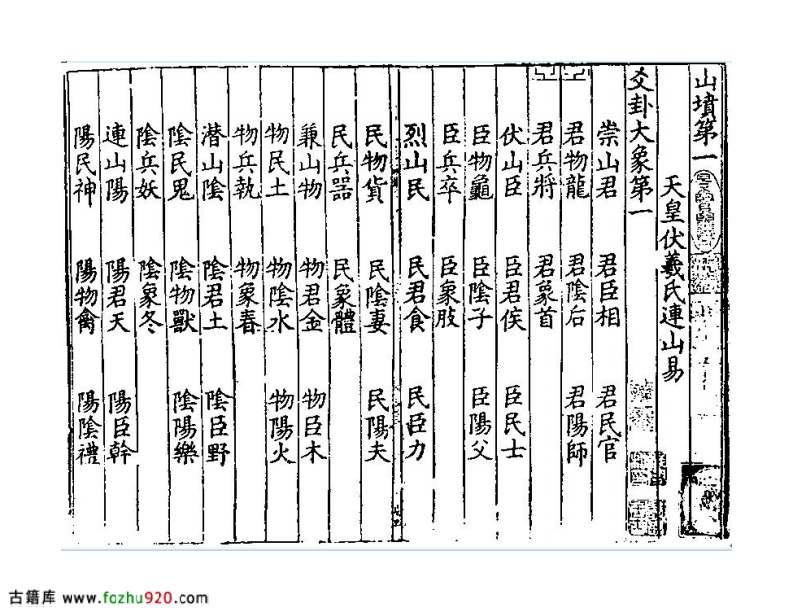 山墳第一
天皇伏羲氏連山易
爻卦大象第一
崇山君 君臣相 君民官
君物龍 君陰后 君陽師
君兵將 君象首
伏山臣 臣君侯 臣民士
臣物龜 臣陰子 臣陽父
臣兵卒 臣象肢
烈山民 民君食 民臣力
民物貨 民陰妻 民陽夫
民兵器 民象體
兼山物 物君金 物臣木
物民土 物陰水 物陽火
物兵執 物象春
潜山陰 陰君土 陰臣野
陰民鬼 陰物獸 陰陽樂
陰兵妖 陰象冬
連山陽 陽君天 陽臣幹
陽民神 陽物禽 陽陰禮
古籍库 www.fozhu920.com